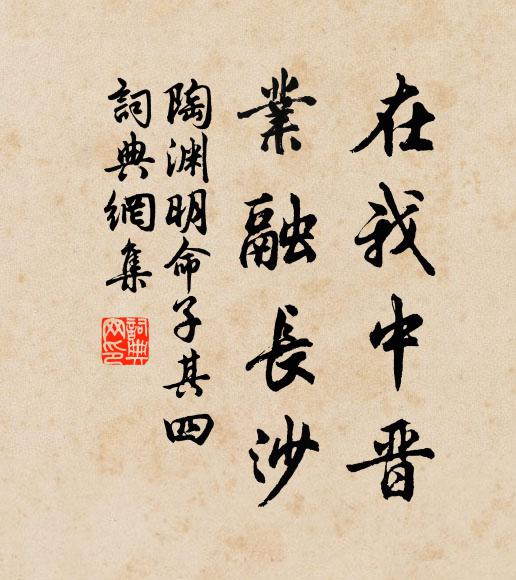 在我中晋
業融長沙
陶渊明命子其四
詞典網集
詞典
网印